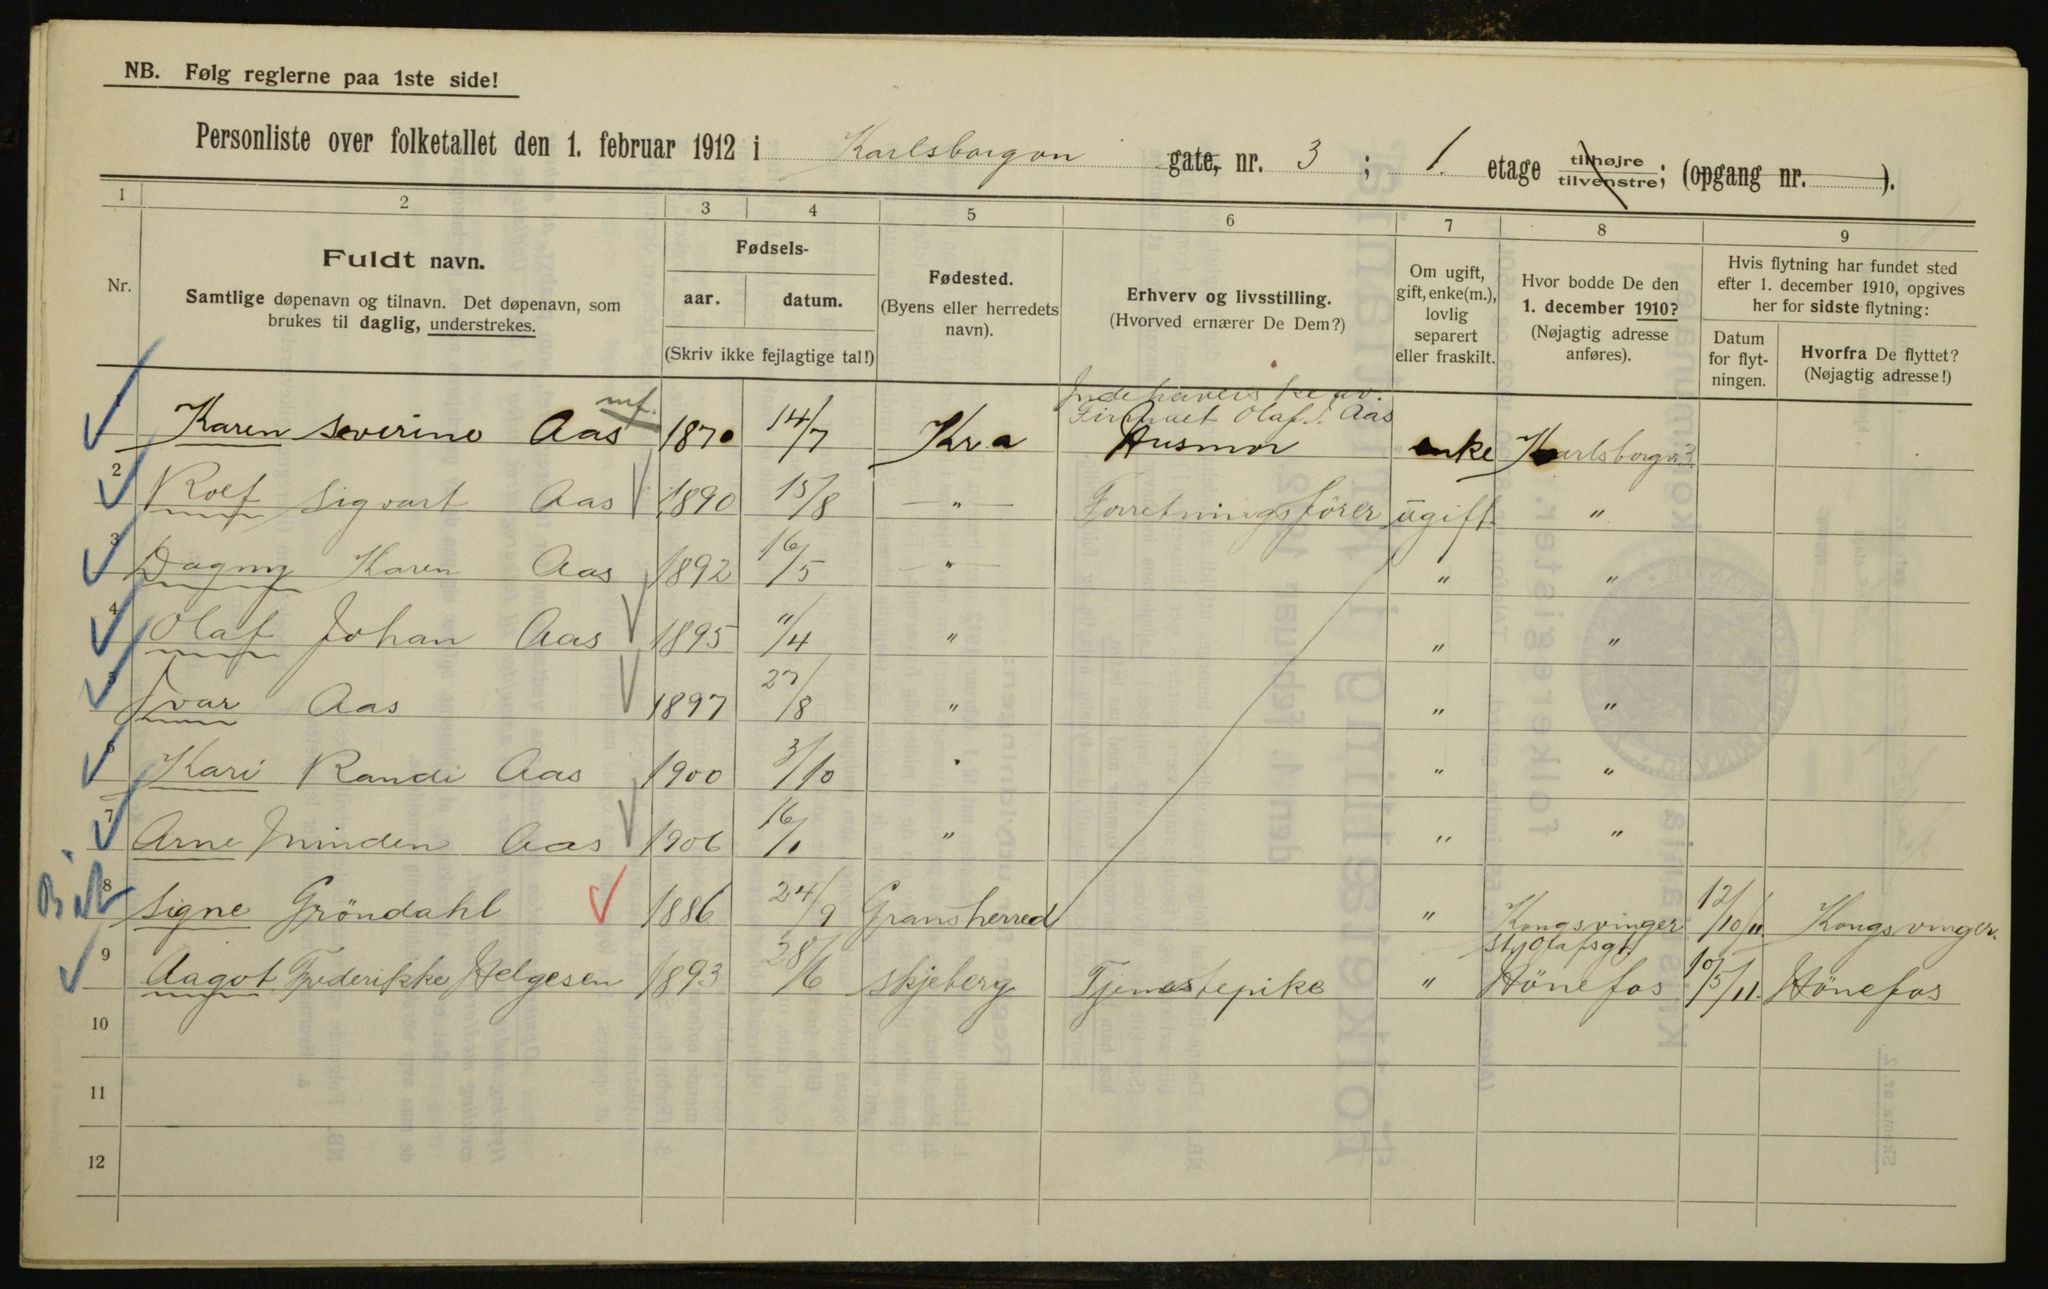 NB. Følg reglerne paa 1ste side!
Personliste over folketallet den 1. februar 1912 i Karlsborgvn gate, nr. 3 ; 1. etage tilhøjre tilvenstre; (opgang nr. ).
1 2 3 4 5 6 7 8 9
Nr.
Fuldt navn.
Samtlige døpenavn og tilnavn. Det døpenavn, som
brukes til daglig, understrekes.
Fødsels-
aar. datum.
(Skriv ikke fejlagtige tal!)
Fødested.
(Byens eller herredets
navn).
Erhverv og livsstilling.
(Hvorved ernærer De Dem?)
Om ugift,
gift, enke(m.),
lovlig
separert
eller fraskilt.
Hvor bodde De den
1. december 1910?
(Nøjagtig adresse
anføres).
Hvis flytning har fundet sted
efter 1. december 1910, opgives
her for sidste flytning:
Datum
for flyt-
ningen.
Hvorfra De flyttet?
(Nøjagtig adresse!)
Indehaverske av.
Firmaet Olaf J. Aas
Karen Severine Aas mf. 1870 14/7 Kr.a Husmor enke Karlsborgv. 3.
2 Rolf Sigvart Aas 1890 15/8 — " — Forretningsfører ugift "
3 Dagny Karen Aas 1892 16/5 — " — " "
4 Olaf Johan Aas 1895 11/4 " " "
5 Ivar Aas 1897 27/8 " " "
6 Kari Randi Aas 1900 3/10 " " "
7 Arne Minden Aas 1906 16/1 " " "
8 Signe Gröndahl 1886 24/9 Gransherred " Kongsvinger 12/10/11 Kongsvinger.
St. Olafsgt.
9 Aagot Frederikke Helgesen 1893 28/6 Skjeberg Tjenestepike " Hönefos 10/5/11. Hönefos
10
11
12